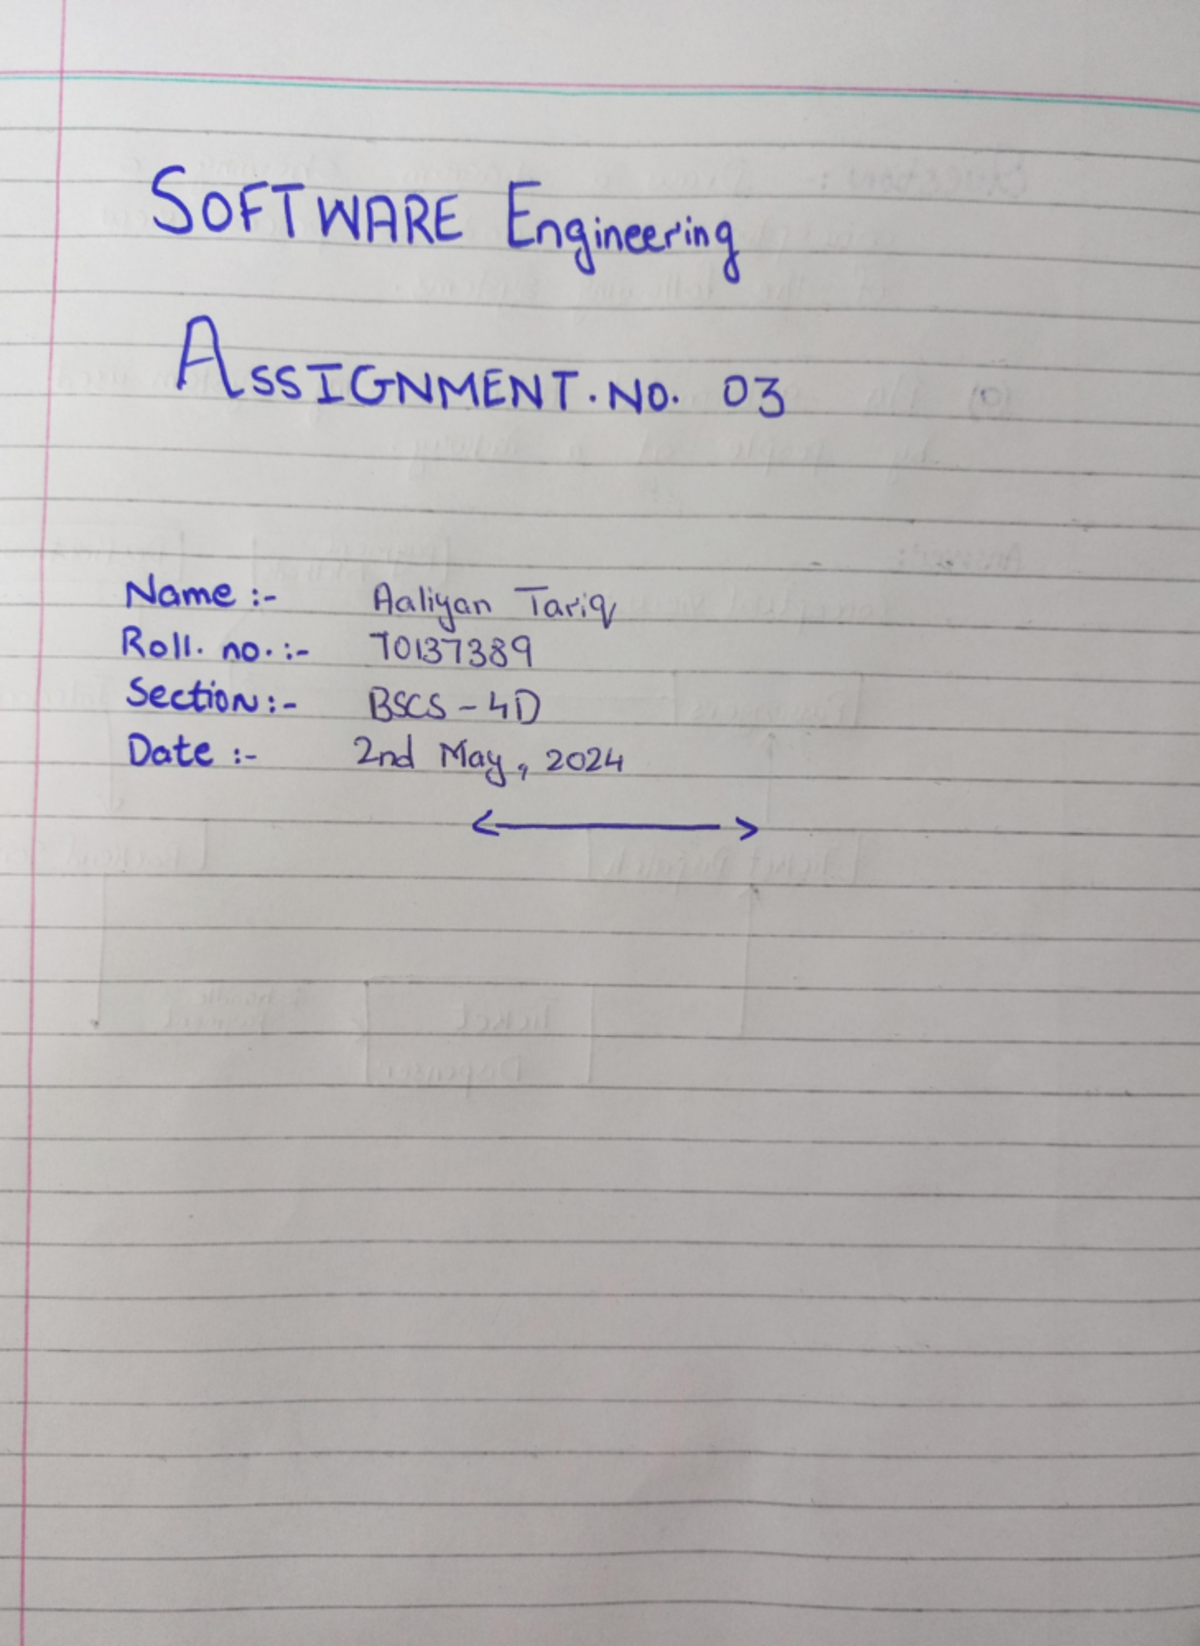 SOFTWARE Engineering
ASSIGNMENT.NO. 03
Name :- Aaliyan Tariq
Roll. no. :- 70137389
Section :- BSCS - 4D
Date :- 2nd May, 2024